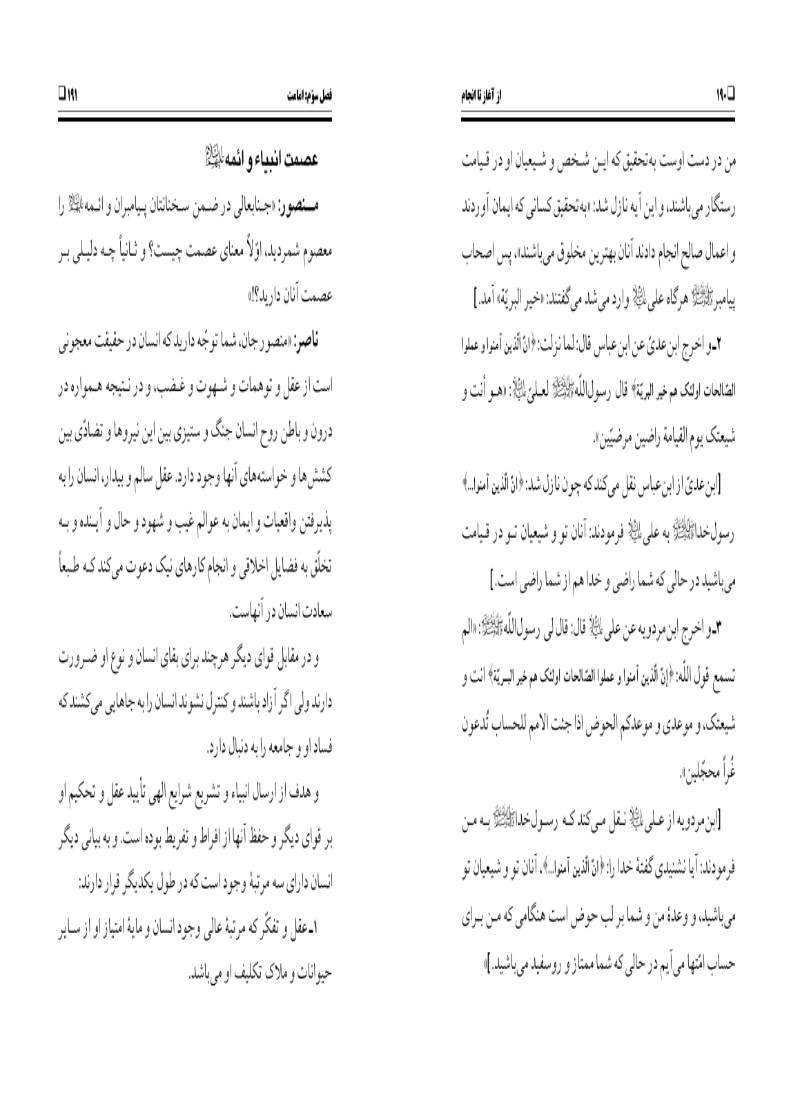 ❏ ۱۹۰ از آغاز تا انجام
من در دست اوست به‌تحقیق که ایـن شـخص و شـیعیان او در قـیامت
رستگار می‌باشند، و این آیه نازل شد: «به‌تحقیق کسانی که ایمان آوردند
و اعمال صالح انجام دادند آنان بهترین مخلوق می‌باشند»، پس اصحاب
پیامبرﷺ هرگاه علی علیه‌السلام وارد می‌شد می‌گفتند: «خیر البریّة» آمد. ]
۲ـ و اخرج ابن‌عدیّ عن ابن‌عباس قال: لما نزلت: ﴿انّ الّذین آمنوا و عملوا
الصّالحات اولئک هم خیر البریّة﴾ قال رسول‌اللّهﷺ لعـلیّ علیه‌السلام: «هـو أنت و
شیعتک یوم القیامة راضین مرضیّین».
[ابن‌عدیّ از ابن‌عباس نقل می‌کند که چون نازل شد: ﴿انّ الّذین آمنوا...﴾
رسول‌خداﷺ به علی علیه‌السلام فرمودند: آنان تو و شیعیان تـو در قـیامت
می‌باشید در حالی که شما راضی و خدا هم از شما راضی است. ]
۳ـ و اخرج ابن‌مردویه عن علی علیه‌السلام قال: قال لی رسول‌اللّهﷺ: «الم
تسمع قول اللّه: ﴿إنّ الّذین آمنوا و عملوا الصّالحات اولئک هم خیر البـریّة﴾ انت و
شیعتک، و موعدی و موعدکم الحوض اذا جئت الامم للحساب تُدعون
غُراً محجّلین».
[ابن‌مردویه از عـلی علیه‌السلام نـقل مـی‌کند کـه رسـول‌خداﷺ بـه مـن
فرمودند: آیا نشنیدی گفتهٔ خدا را: ﴿انّ الّذین آمنوا...﴾، آنان تو و شیعیان تو
می‌باشید، و وعدهٔ من و شما بر لب حوض است هنگامی که مـن بـرای
حساب امّتها می‌آیم در حالی که شما ممتاز و روسفید می‌باشید. ]»
فصل سوّم: امامت ۱۹۱ ❏
عصمت انبیاء و ائمه علیهم‌السلام
مـنصور: «جـنابعالی در ضـمن سـخنانتان پـیامبران و ائـمه علیهم‌السلام را
معصوم شمردید، اوّلاً معنای عصمت چیست؟ و ثـانیاً چـه دلیـلی بـر
عصمت آنان دارید؟!»
ناصر: «منصور جان، شما توجّه دارید که انسان در حقیقت معجونی
است از عقل و توهمات و شـهوت و غـضب، و در نـتیجه هـمواره در
درون و باطن روح انسان جنگ و ستیزی بین این نیروها و تضادّی بین
کشش‌ها و خواسته‌های آنها وجود دارد. عقل سالم و بیدار، انسان را به
پذیرفتن واقعیات و ایمان به عوالم غیب و شهود و حال و آیـنده و بـه
تخلّق به فضایل اخلاقی و انجام کارهای نیک دعوت می‌کند کـه طـبعاً
سعادت انسان در آنهاست.
و در مقابل قوای دیگر هرچند برای بقای انسان و نوع او ضـرورت
دارند ولی اگر آزاد باشند و کنترل نشوند انسان را به جاهایی می‌کشند که
فساد او و جامعه را به دنبال دارد.
و هدف از ارسال انبیاء و تشریع شرایع الهی تأیید عقل و تحکیم او
بر قوای دیگر و حفظ آنها از افراط و تفریط بوده است. و به بیانی دیگر
انسان دارای سه مرتبهٔ وجود است که در طول یکدیگر قرار دارند:
۱ـ عقل و تفکّر که مرتبهٔ عالی وجود انسان و مایهٔ امتیاز او از سـایر
حیوانات و ملاک تکلیف او می‌باشد.